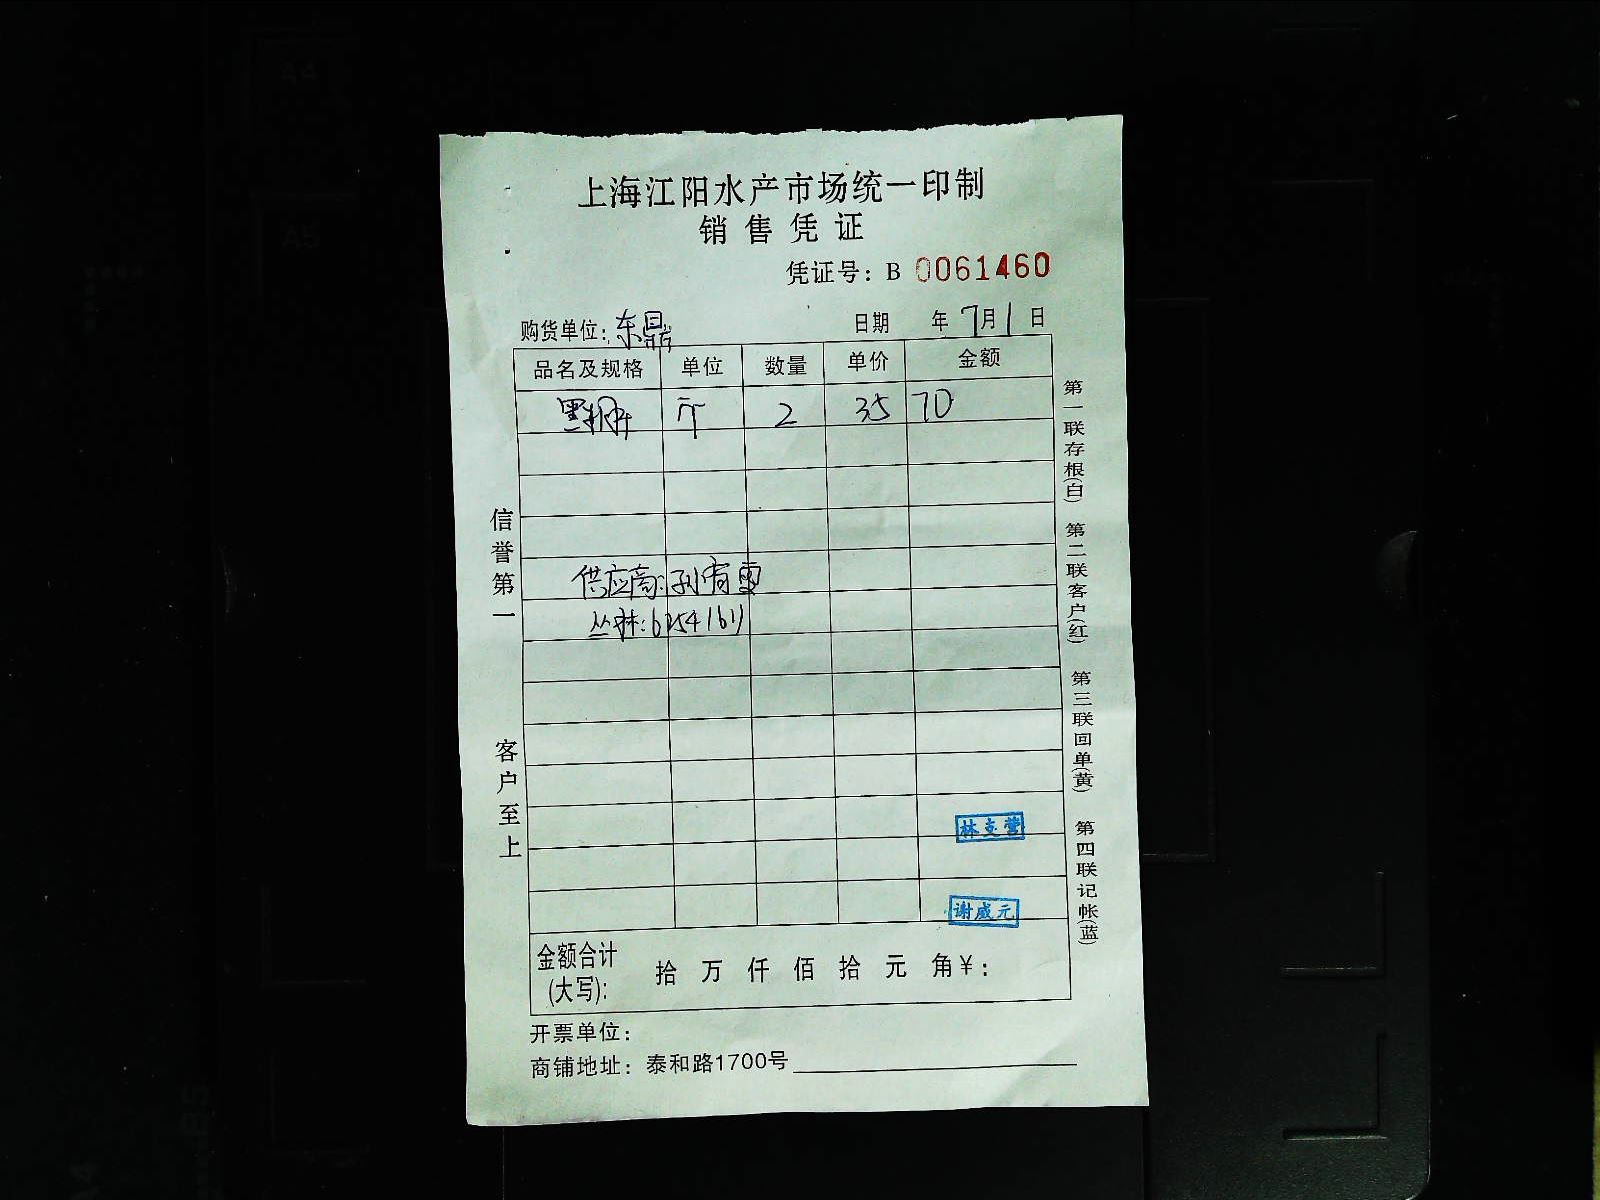 上海江阳水产市场统一印制
销售凭证
凭证号：B 0061460
购货单位：东鼎
日期 年 7月1日
品名及规格 单位 数量 单价 金额
黑 斤 2 35 70
供应商：孙
丛林：62541611
林支营
谢咸元
金额合计（大写）： 拾 万 仟 佰 拾 元 角 ¥：
开票单位：
商铺地址：泰和路1700号
信誉第一 客户至上
第一联存根(白) 第二联客户(红) 第三联回单(黄) 第四联记帐(蓝)
A4
A5